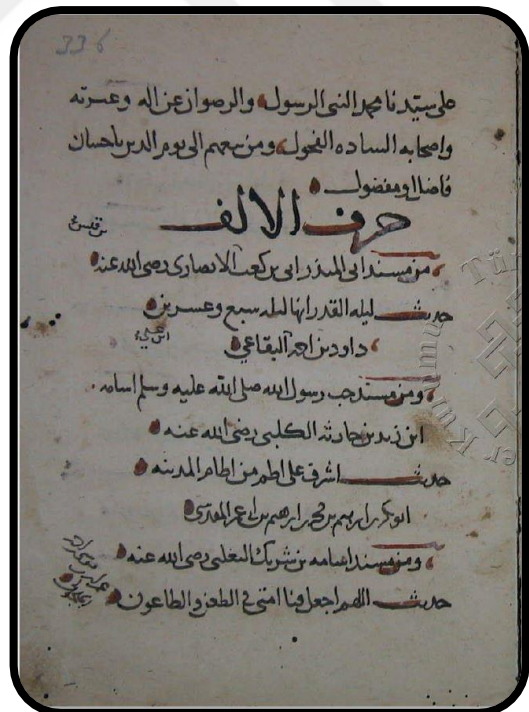 336
على سيدنا محمد النبي الرسول والرضوان عن اله وعترته
واصحابه الساده الفحول ومن تبعهم الى يوم الدين باحسان
فاضل او مفضول
حرف الالف
من مسند ابي المنذر ابي بن كعب الانصاري رضي الله عنه
حديث ليله القدر انها ليله سبع وعشرين
داود بن احمد البقاعي
ابن علي
ومن مسند حب رسول الله صلى الله عليه وسلم اسامه
ابن زيد بن حارثه الكلبي رضي الله عنه
حديث اشرف على اطم من اطام المدينه
ابو بكر ابراهيم بن محمد بن ابرهيم بن ابي عمر المقدسي
ومن مسند اسامه بن شريك الثعلبي رضي الله عنه
حديث اللهم اجعل فنا امتي في الطعن والطاعون